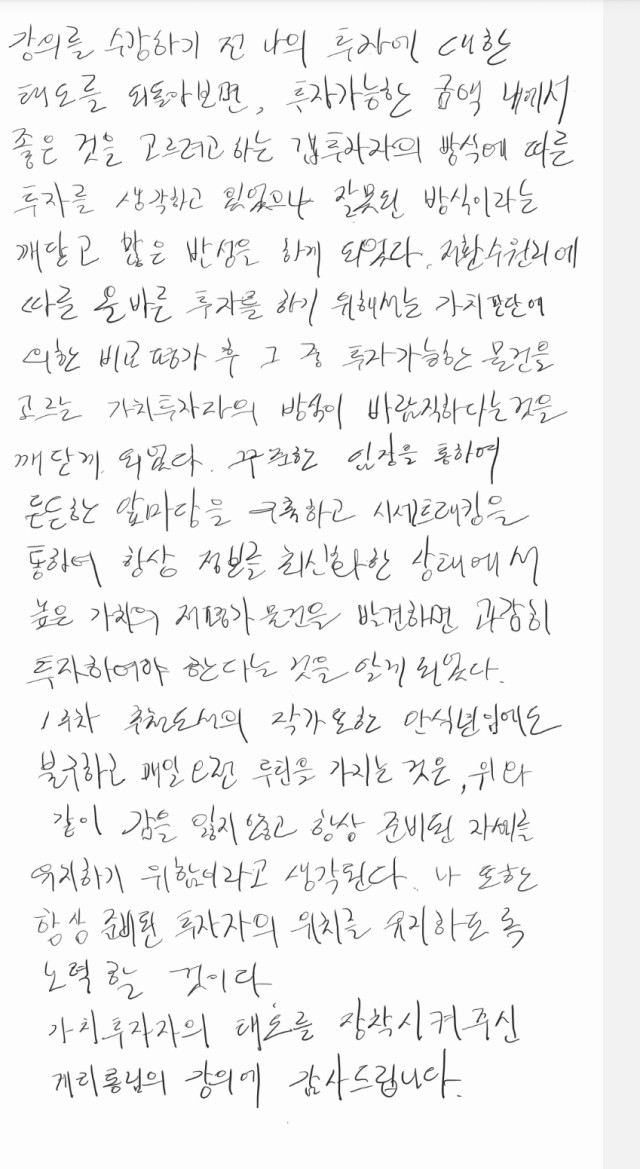 강의를 수강하기 전 나의 투자에 대한
태도를 되돌아보면, 투자가능한 금액 내에서
좋은 것을 고르려고하는 갭투자자의 방식에 따른
투자를 생각하고 있었으나 잘못된 방식이라는
깨닫고 많은 반성을 하게 되었다. 저환수원리에
따른 올바른 투자를 하기 위해서는 가치판단에
의한 비교평가 후 그 중 투자가능한 물건을
고르는 가치투자자의 방식이 바람직하다는것을
깨닫게 되었다. 꾸준한 임장을 통하여
든든한 앞마당을 구축하고 시세트래킹을
통하여 항상 정보를 최신화한 상태에서
높은 가치의 저평가 물건을 발견하면 과감히
투자하여야 한다는 것을 알게 되었다.
1주차 추천도서의 작가 또한 안식년임에도
불구하고 매일 오전 루틴을 가지는 것은, 위와
같이 감을 잃지 않고 항상 준비된 자세를
유지하기 위함이라고 생각된다. 나 또한
항상 준비된 투자자의 위치를 유지하도록
노력할 것이다
가치투자자의 태도를 장착시켜주신
게리롱님의 강의에 감사드립니다.